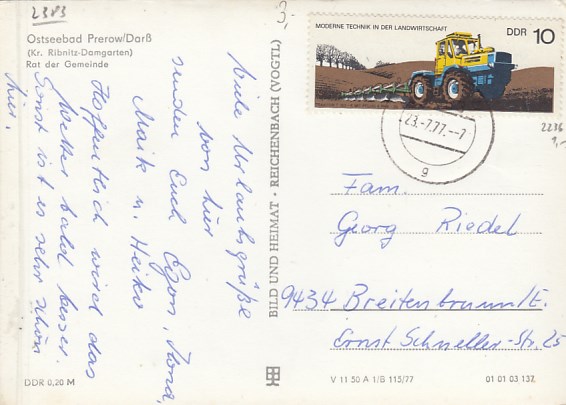 2383
3,-
Ostseebad Prerow/Darß
(Kr. Ribnitz-Damgarten)
Rat der Gemeinde
Viele Urlaubsgrüße
von hier
senden Euch Egon,
Maik u. Heiko
Hoffentlich wird das
Wetter bald besser.
Sonst ist es sehr schön
hier.
DDR 0,20 M
BILD UND HEIMAT · REICHENBACH (VOGTL)
MODERNE TECHNIK IN DER LANDWIRTSCHAFT
DDR 10
23.-7.77.--7
g
2236
1,-
Fam.
Georg Riedel
9434 Breitenbrunn/E.
Ernst Schneller-Str. 25
V 11 50 A 1/B 115/77
01 01 03 137